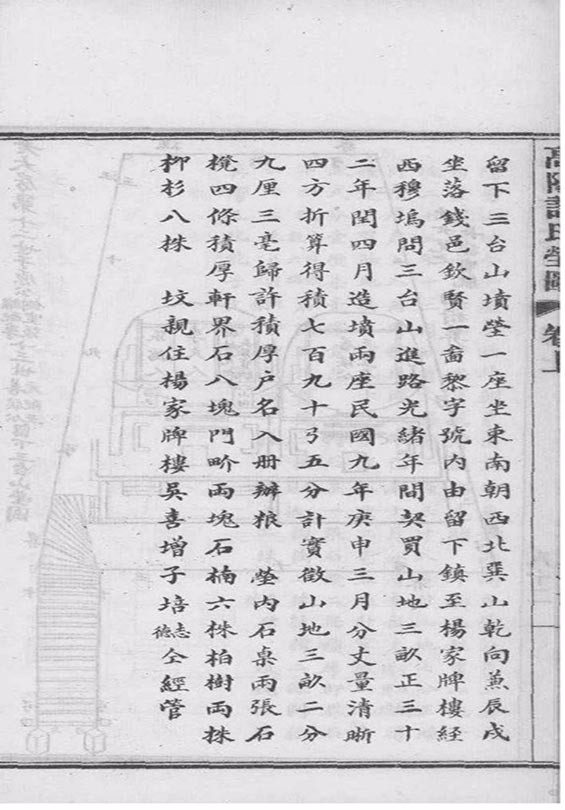 高陽許氏塋圖 卷上
留下三台山墳塋一座坐東南朝西北巽山乾向兼辰戌
坐落錢邑欽賢一啚黎字號內由留下鎮至楊家牌樓經
西穆塢問三台山進路光緒年間契買山地三畝正三十
二年閏四月造墳兩座民國九年庚申三月分丈量清晰
四方折算得積七百九十弓五分計實徵山地三畝二分
九厘三毫歸許積厚戶名入册辦粮 塋內石桌兩張石
櫈四條積厚軒界石八塊門畍兩塊石楠六株柏樹兩株
柳杉八株 坟親住楊家牌樓吳喜增子培志德仝經管